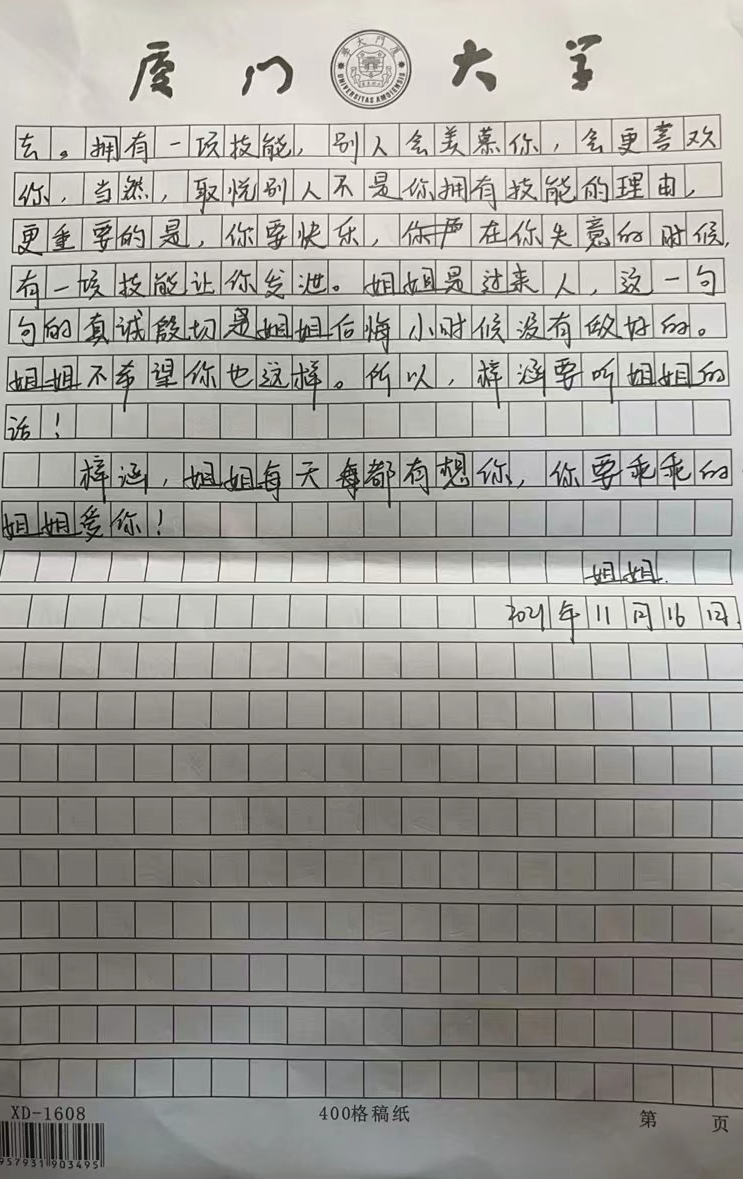 厦门大学
UNIVERSITAS AMOIENSIS
去。拥有一项技能，别人会羡慕你，会更喜欢
你，当然，取悦别人不是你拥有技能的理由，
更重要的是，你要快乐，在你失意的时候，
有一项技能让你发泄。姐姐是过来人，这一句
句的真诚殷切是姐姐后悔小时候没有做好的。
姐姐不希望你也这样。所以，梓涵要听姐姐的
话！
梓涵，姐姐每天都有想你，你要乖乖的
姐姐爱你！
姐姐.
2021年11月16日.
XD-1608
400格稿纸
第 页
957931 903495